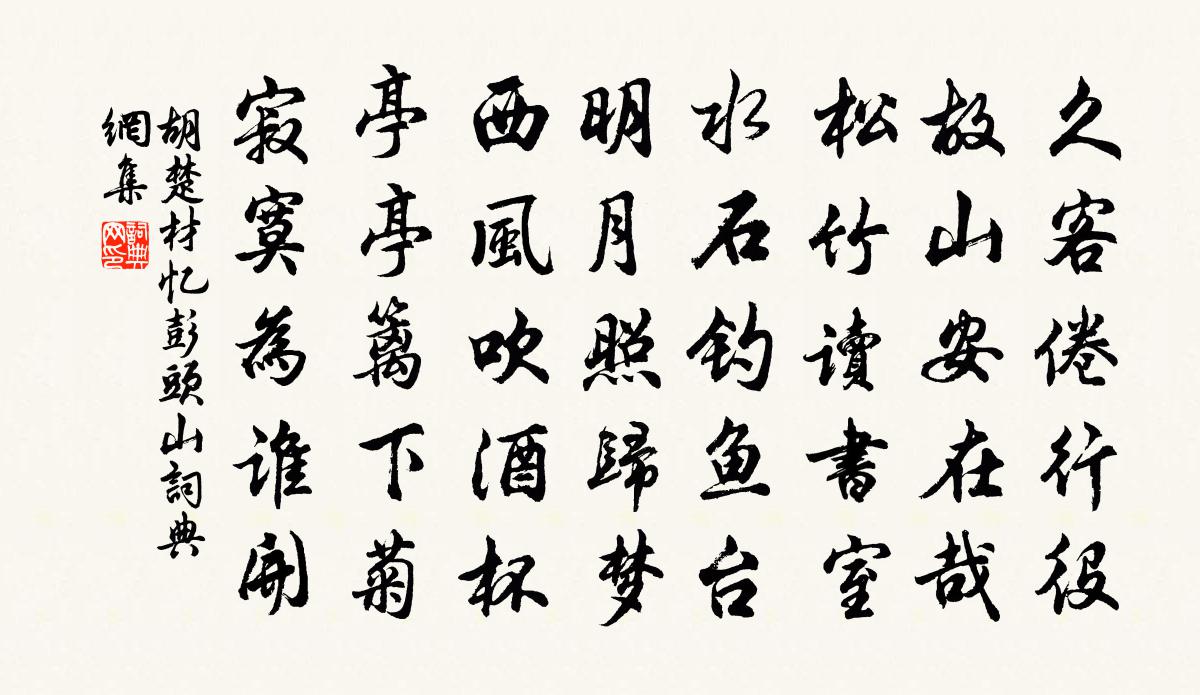 久客倦行役
故山安在哉
松竹讀書室
水石钓鱼台
明月照歸梦
西風吹酒杯
亭亭篱下菊
寂寞為谁開
胡楚材忆彭頭山詞典
網集
詞典
网印